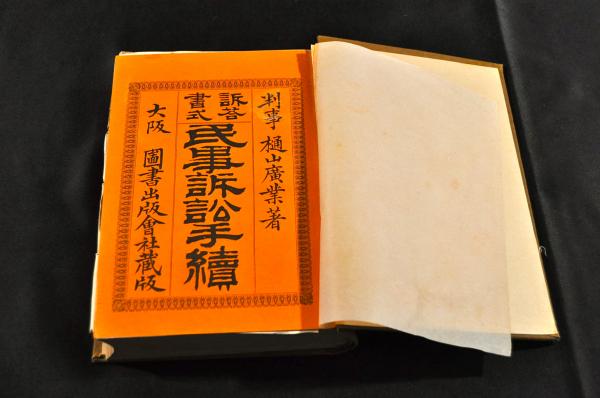 判事 樋山廣業著
訴答
書式
民事訴訟手續
大阪 圖書出版會社藏版